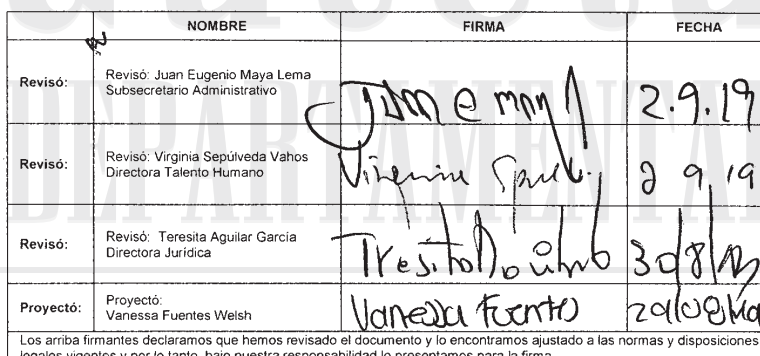 DEPARTAMENTAL
NOMBRE FIRMA FECHA
Revisó: Revisó: Juan Eugenio Maya Lema
Subsecretario Administrativo
2.9.19
Revisó: Revisó: Virginia Sepúlveda Vahos
Directora Talento Humano
2 9 19
Revisó: Revisó: Teresita Aguilar García
Directora Jurídica
30/8/
Proyectó: Proyectó:
Vanessa Fuentes Welsh
Vanessa Fuentes 29/08/
Los arriba firmantes declaramos que hemos revisado el documento y lo encontramos ajustado a las normas y disposiciones
legales vigentes y por lo tanto, bajo nuestra responsabilidad lo presentamos para la firma.